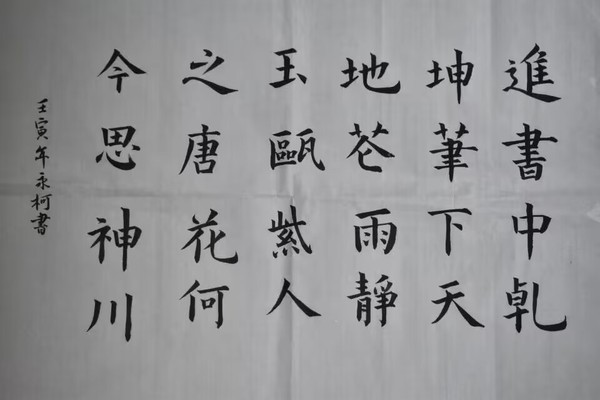 進書中乹
坤筆下天
地苍雨靜
玉甌紫人
之唐花何
今思神川
壬寅年永柯書